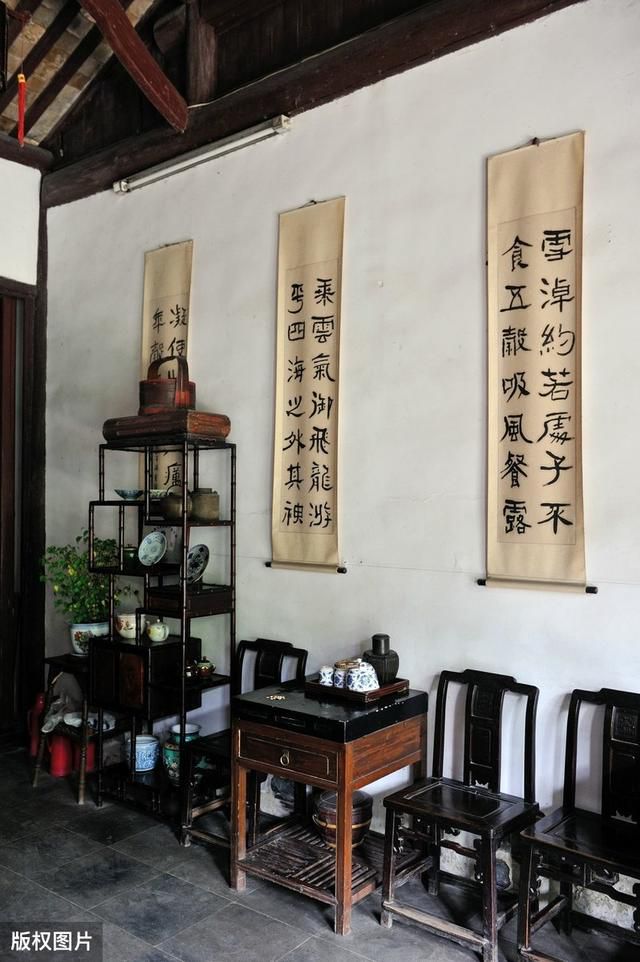 雪淖約若處子不
食五穀吸風餐露
乘雲氣御飛龍游
乎四海之外其神
凝使
癘
年穀
版权图片